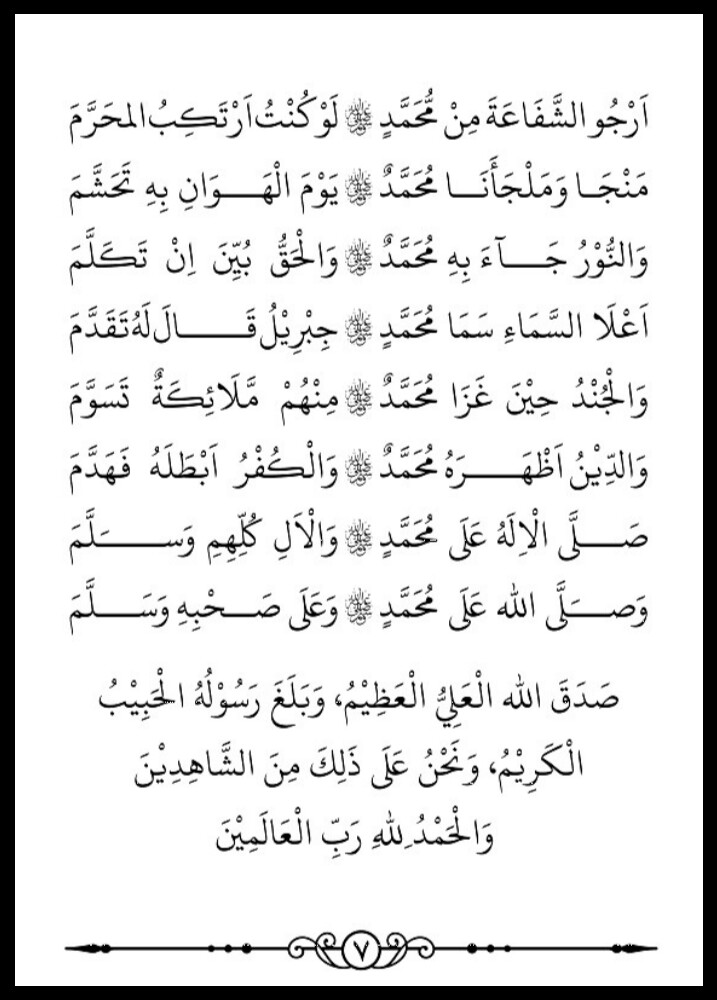 اَرْجُو الشَّفَاعَةَ مِنْ مُّحَمَّدٍ ﷺ لَوْ كُنْتُ اَرْتَكِبُ المحَرَّمَ
مَنْجَـا وَمَلْجَأَنَــا مُحَمَّدٌ ﷺ يَوْمَ الْهَـــوَانِ بِهِ تَحَشَّمَ
وَالنُّوْرُ جَــآءَ بِهِ مُحَمَّدٌ ﷺ وَالْحَقُّ بُيِّنَ اِنْ تَكَلَّمَ
اَعْلَا السَّمَاءِ سَمَا مُحَمَّدٍ ﷺ جِبْرِيْلُ قَــــالَ لَهُ تَقَدَّمَ
وَالْجُنْدُ حِيْنَ غَزَا مُحَمَّدٌ ﷺ مِنْهُمْ مَّلَائِكَةٌ تَسَوَّمَ
وَالدِّيْنُ اَظْهَــــرَهُ مُحَمَّدٌ ﷺ وَالْكُفْرُ اَبْطَلَهُ فَهَدَّمَ
صَــــلَّى الْاِلَهُ عَلَى مُحَمَّدٍ ﷺ وَالْاَلِ كُلِّهِمِ وَســــــلَّمَ
وَصَــــلَّى الله عَلَى مُحَمَّدٍ ﷺ وَعَلَى صَــحْبِهِ وَسَــــلَّمَ
صَدَقَ الله الْعَلِيُّ الْعَظِيْمُ، وَبَلَغَ رَسُوْلُهُ الْحَبِيْبُ
الْكَرِيْمُ، وَنَحْنُ عَلَى ذَلِكَ مِنَ الشَّاهِدِيْنَ
وَالْحَمْدُ لِلّٰهِ رَبِّ الْعَالَمِيْنَ
٧